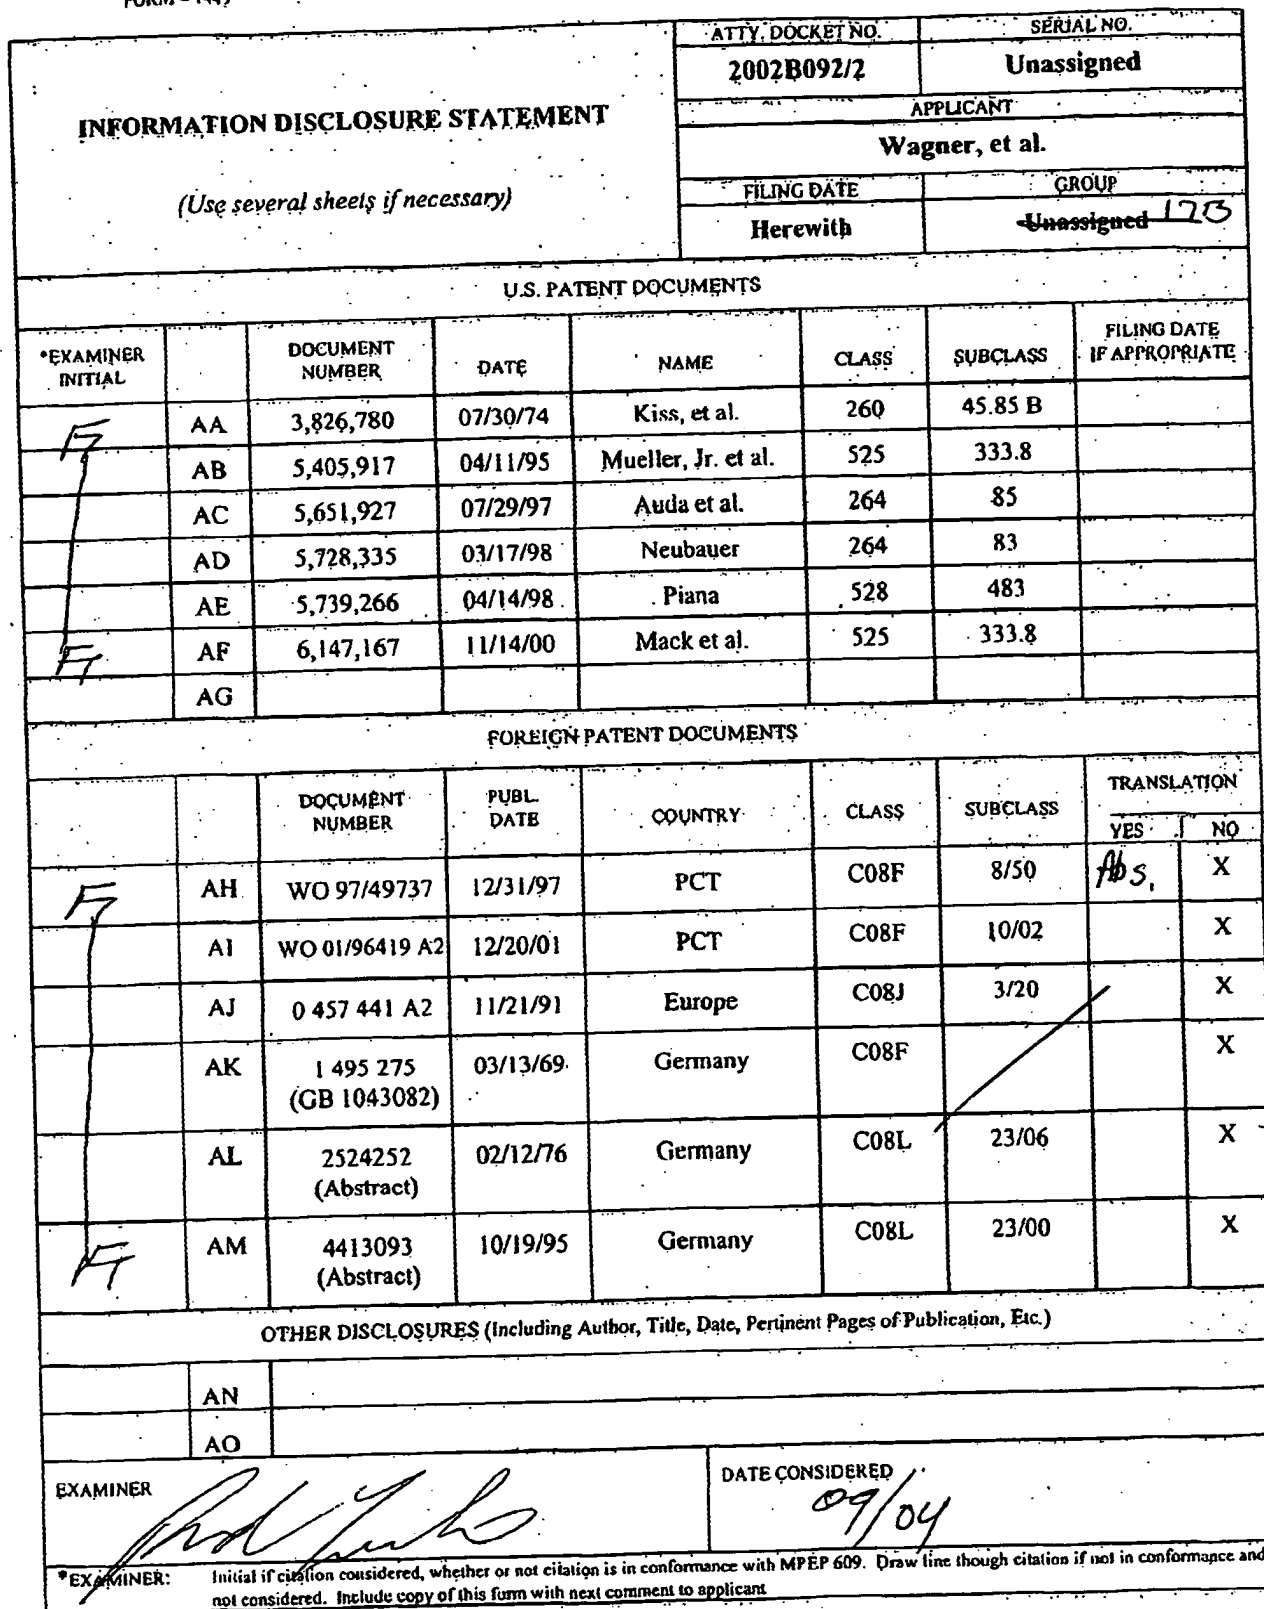 FORM - 1449
INFORMATION DISCLOSURE STATEMENT
(Use several sheets if necessary)
ATTY. DOCKET NO.
2002B092/2
SERIAL NO.
Unassigned
APPLICANT
Wagner, et al.
FILING DATE
Herewith
GROUP
Unassigned 1713
U.S. PATENT DOCUMENTS
*EXAMINER INITIAL DOCUMENT NUMBER DATE NAME CLASS SUBCLASS FILING DATE IF APPROPRIATE
AA 3,826,780 07/30/74 Kiss, et al. 260 45.85 B
AB 5,405,917 04/11/95 Mueller, Jr. et al. 525 333.8
AC 5,651,927 07/29/97 Auda et al. 264 85
AD 5,728,335 03/17/98 Neubauer 264 83
AE 5,739,266 04/14/98 Piana 528 483
AF 6,147,167 11/14/00 Mack et al. 525 333.8
AG
FOREIGN PATENT DOCUMENTS
DOCUMENT NUMBER PUBL. DATE COUNTRY CLASS SUBCLASS TRANSLATION
YES NO
AH WO 97/49737 12/31/97 PCT C08F 8/50 Abs. X
AI WO 01/96419 A2 12/20/01 PCT C08F 10/02 X
AJ 0 457 441 A2 11/21/91 Europe C08J 3/20 X
AK 1 495 275 03/13/69 Germany C08F X
(GB 1043082)
AL 2524252 02/12/76 Germany C08L 23/06 X
(Abstract)
AM 4413093 10/19/95 Germany C08L 23/00 X
(Abstract)
OTHER DISCLOSURES (Including Author, Title, Date, Pertinent Pages of Publication, Etc.)
AN
AO
EXAMINER
DATE CONSIDERED
09/04
*EXAMINER: Initial if citation considered, whether or not citation is in conformance with MPEP 609. Draw line though citation if not in conformance and
not considered. Include copy of this form with next comment to applicant